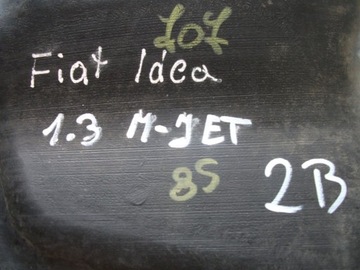 707
Fiat Idea
1.3 M-JET
85
2B